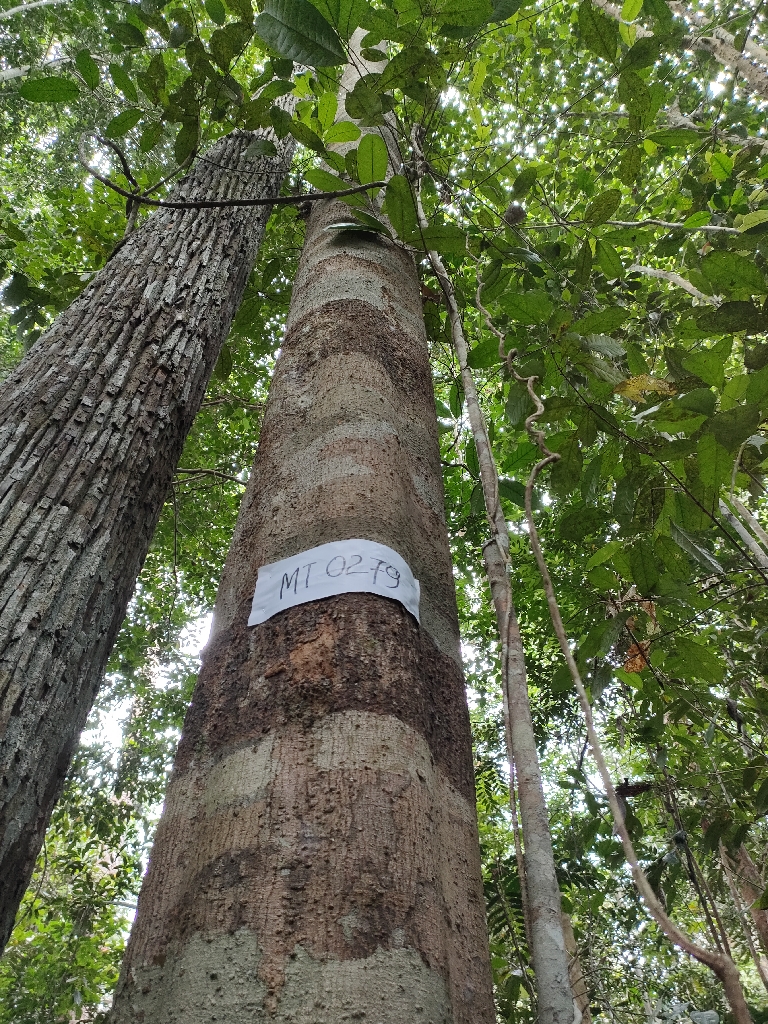 MT 0279